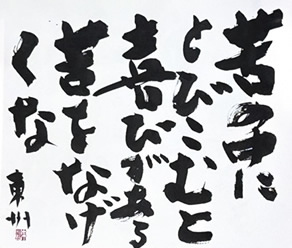 苦の中に
とびこむと
喜びがある
苦をなげ
くな
東州